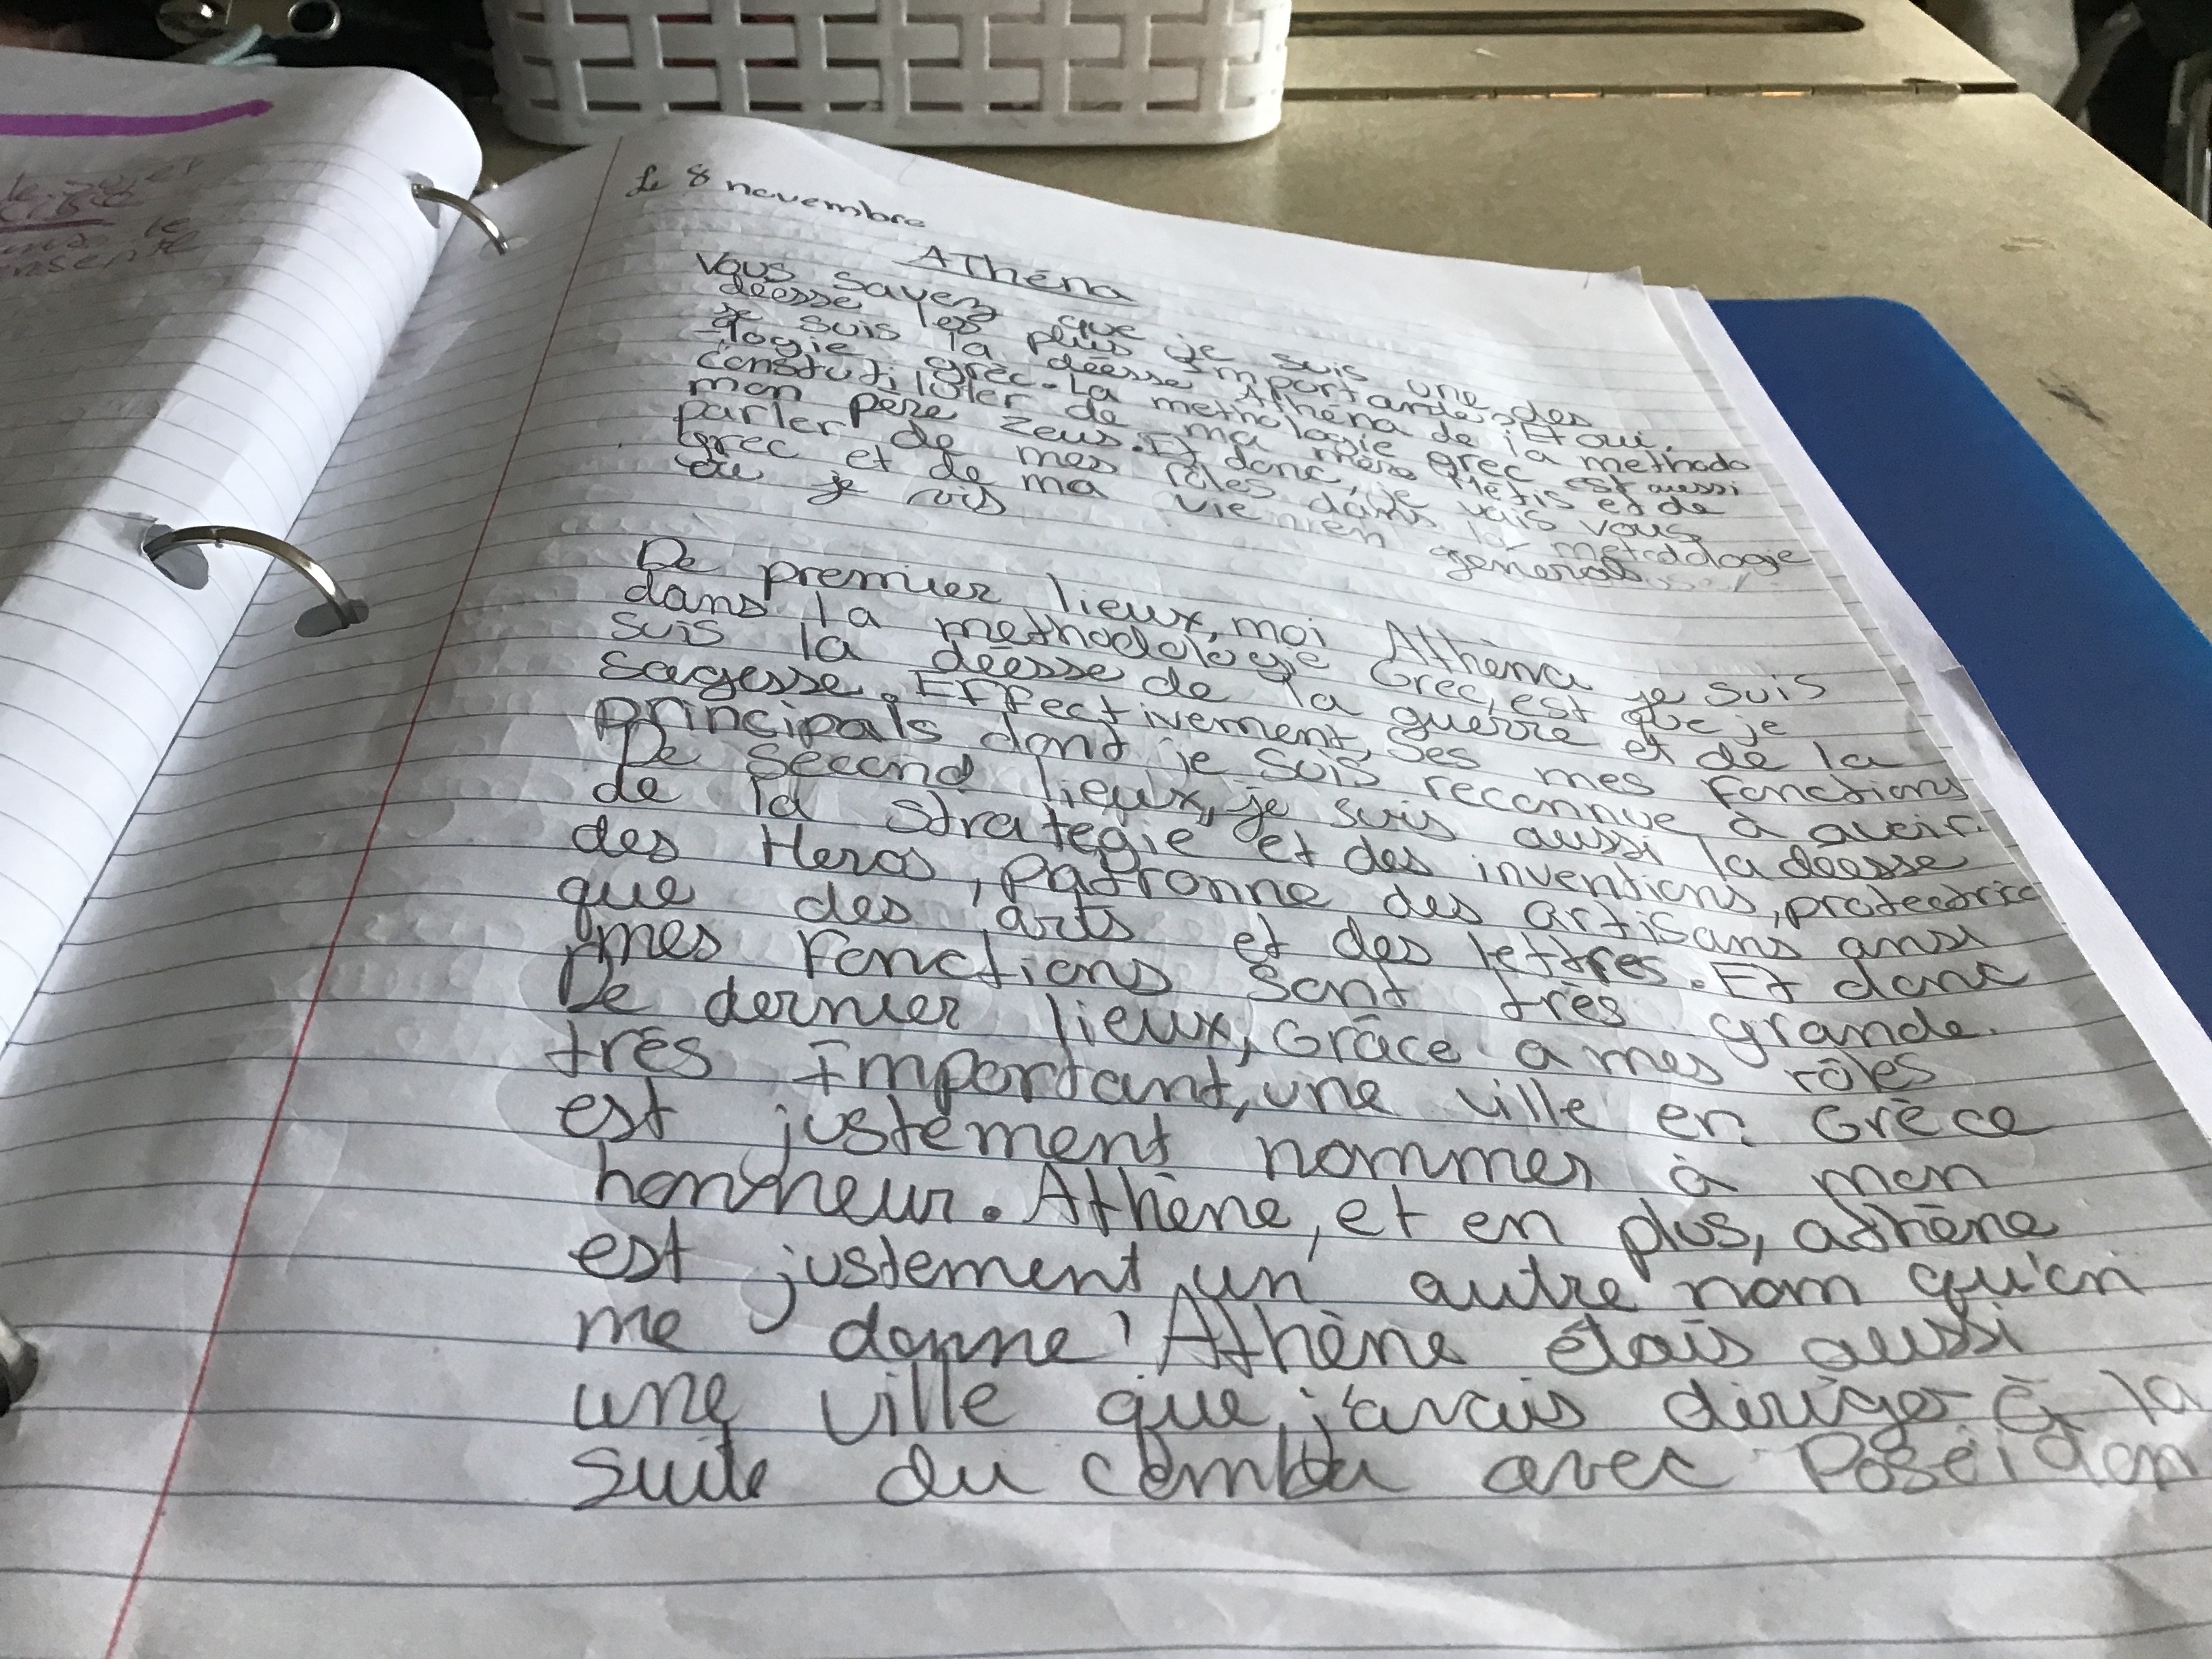 Le 8 novembre
Athéna
Vous savez que je suis une des
déesse les plus importante? Et oui,
je suis la déesse Athéna de la méthodo
logie grèc. La méthologie grec est aussi
constutituter de ma mère Métis et de
mon père Zeus. Et donc, je vais vous
parler de mes rôles dans la métodologie
grec et de ma vie en général
où je vis
De premier lieux, moi Athèna je suis
dans la méthodologie Grec, est que je
suis la déesse de la guerre et de la
sagesse. Effectivement, ses mes fonctions
principals dont je suis reconnue à avoir.
De second lieux, je suis aussi la déesse
de la stratégie et des inventions, protectrice
des Heros, patronne des artisans ansi
que des arts et des lettres. Et donc
mes fonctions sont très grande.
De dernier lieux, Grâce a mes rôles
très Important, une ville en Grèce
est justement nommer à mon
honneur. Athène, et en plus, athène
est justement un autre nom qu'on
me donne! Athène étais aussi
une ville que j'avais diriger à la
suite du comba avec Poséidon